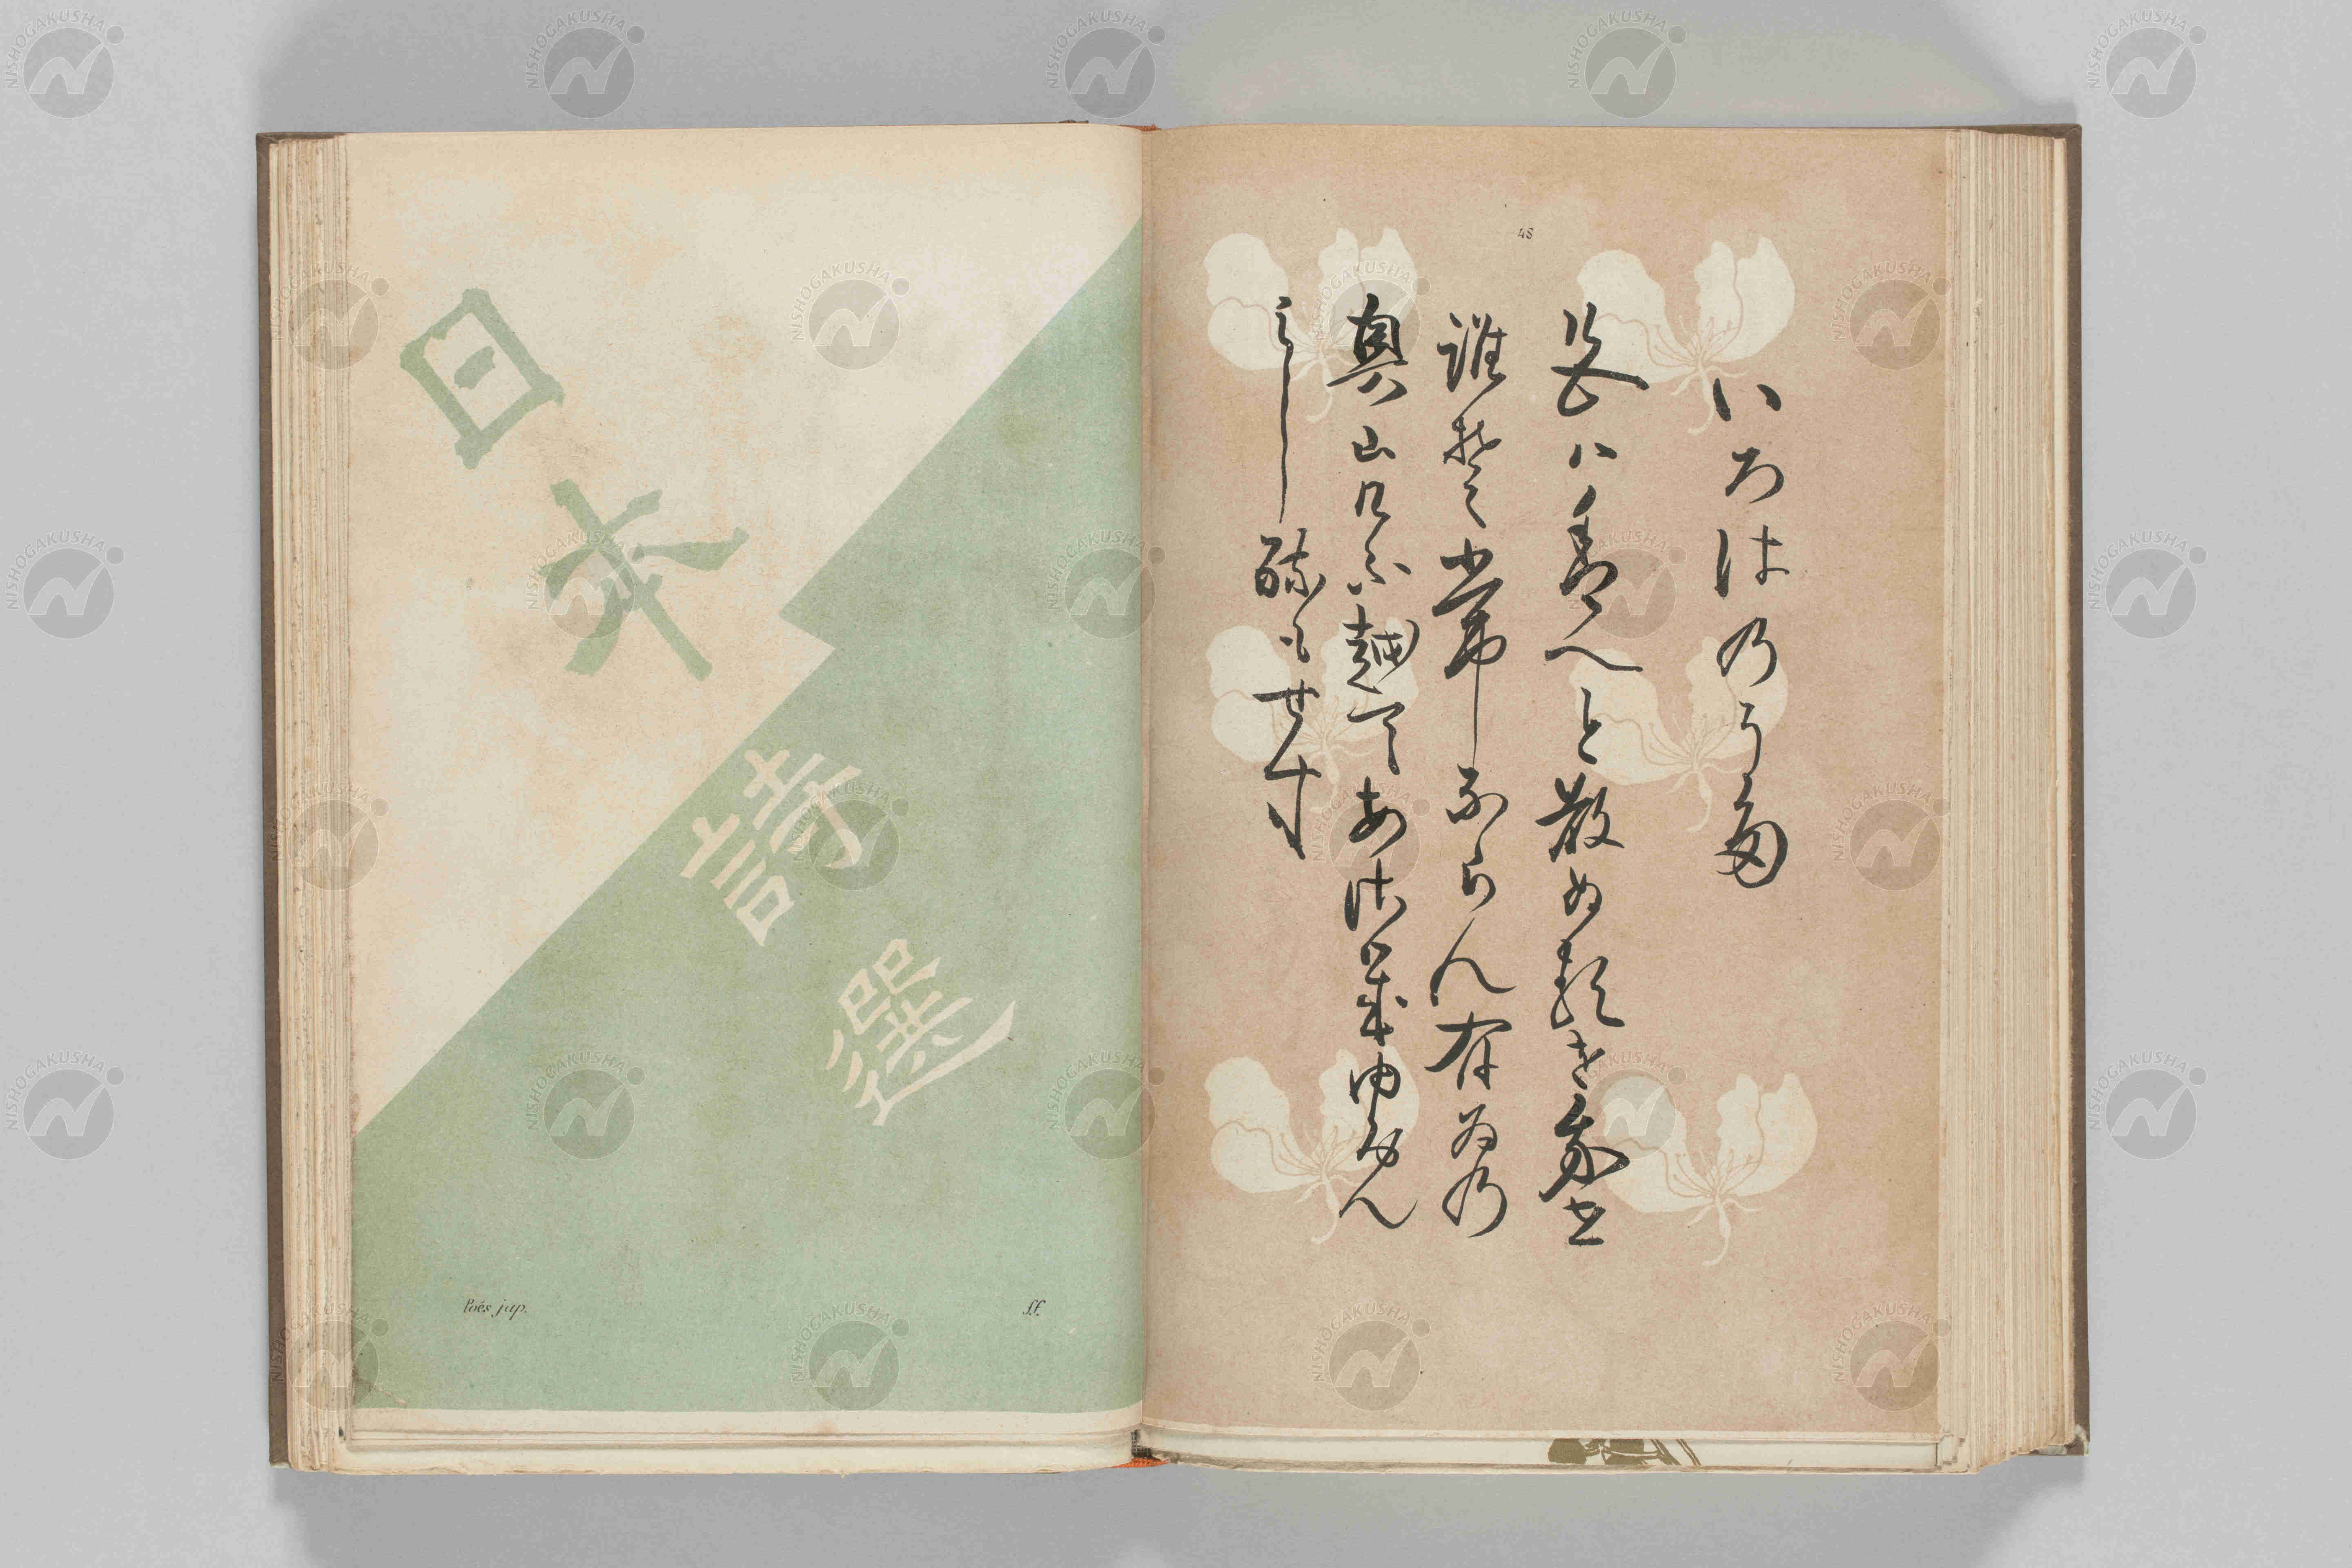 日本
詩選
Poés jap.
ff.
48
いろは乃うた
色ハ香へと散ぬるを我世
誰そ常ならん有為乃
奥山けふ越てあさきゆめ
みし酔もせす